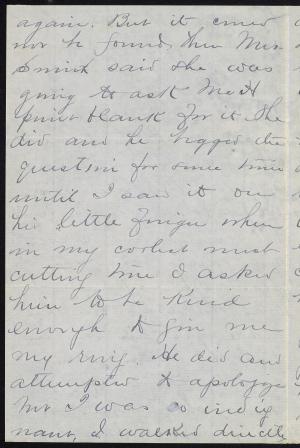 again. But it could
not be found, then Mrs
Smith said she was
going to ask Me
point blank for it. She
did and he begged the
question for some time
until I saw it on
his little finger when
in my coolest most
cutting tone I asked
him to be kind
enough to give me
my ring. He did and
attempted to apologize
but I was so indig
nant, I walked directly